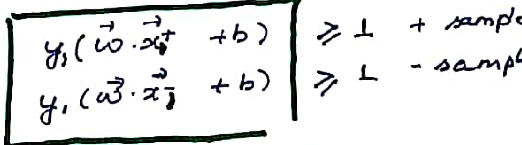 y₁(w⃗·x⃗ᵢ⁺ +b) ⩾ 1 + sample
y₁(w⃗·x⃗ᵢ⁻ +b) ⩾ 1 - sampl